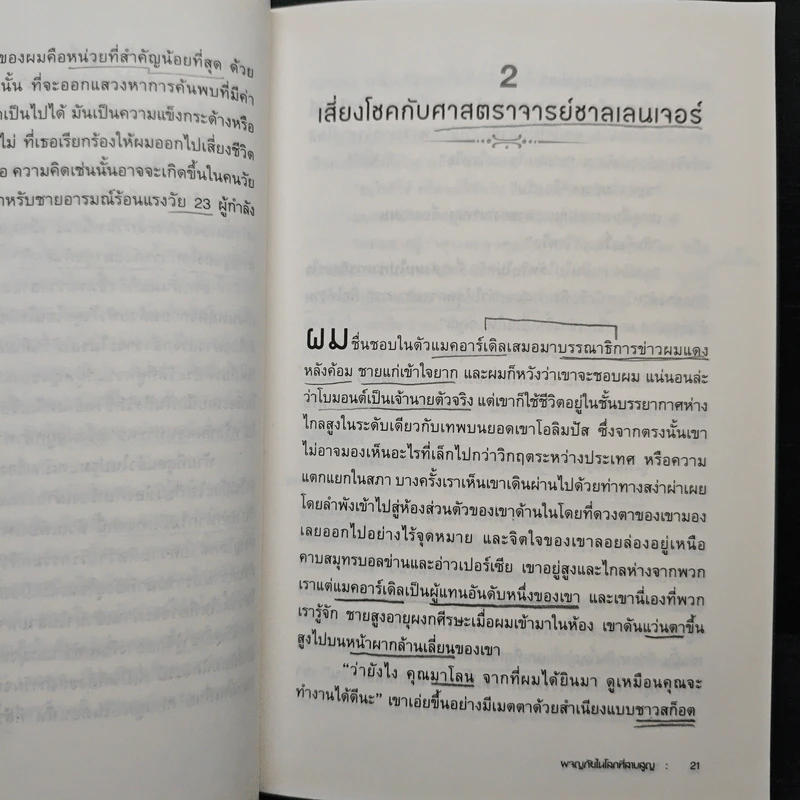 ของผมคือหน่วยที่สำคัญน้อยที่สุด ด้วย
นั้น ที่จะออกแสวงหาการค้นพบที่มีค่า
เป็นไปได้ มันเป็นความแข็งกระด้างหรือ
ไม่ ที่เธอเรียกร้องให้ผมออกไปเสี่ยงชีวิต
อ ความคิดเช่นนั้นอาจจะเกิดขึ้นในคนวัย
หรับชายอารมณ์ร้อนแรงวัย 23 ผู้กำลัง
2
เสี่ยงโชคกับศาสตราจารย์ชาลเลนเจอร์
ผมชื่นชอบในตัวแมคอาร์เดิลเสมอมาบรรณาธิการข่าวผมแดง
หลังค้อม ชายแก่เข้าใจยาก และผมก็หวังว่าเขาจะชอบผม แน่นอนล่ะ
ว่าโบมอนต์เป็นเจ้านายตัวจริง แต่เขาก็ใช้ชีวิตอยู่ในชั้นบรรยากาศห่าง
ไกลสูงในระดับเดียวกับเทพบนยอดเขาโอลิมปัส ซึ่งจากตรงนั้นเขา
ไม่อาจมองเห็นอะไรที่เล็กไปกว่าวิกฤตระหว่างประเทศ หรือความ
แตกแยกในสภา บางครั้งเราเห็นเขาเดินผ่านไปด้วยท่าทางสง่าผ่าเผย
โดยลำพังเข้าไปสู่ห้องส่วนตัวของเขาด้านในโดยที่ดวงตาของเขามอง
เลยออกไปอย่างไร้จุดหมาย และจิตใจของเขาลอยล่องอยู่เหนือ
คาบสมุทรบอลข่านและอ่าวเปอร์เซีย เขาอยู่สูงและไกลห่างจากพวก
เราแต่แมคอาร์เดิลเป็นผู้แทนอันดับหนึ่งของเขา และเขานี่เองที่พวก
เรารู้จัก ชายสูงอายุผงกศีรษะเมื่อผมเข้ามาในห้อง เขาดันแว่นตาขึ้น
สูงไปบนหน้าผากล้านเลี่ยนของเขา
“ว่ายังไง คุณมาโลน จากที่ผมได้ยินมา ดูเหมือนคุณจะ
ทำงานได้ดีนะ” เขาเอ่ยขึ้นอย่างมีเมตตาด้วยสำเนียงแบบชาวสก็อต
ผจญภัยในโลกที่สาบสูญ : 21